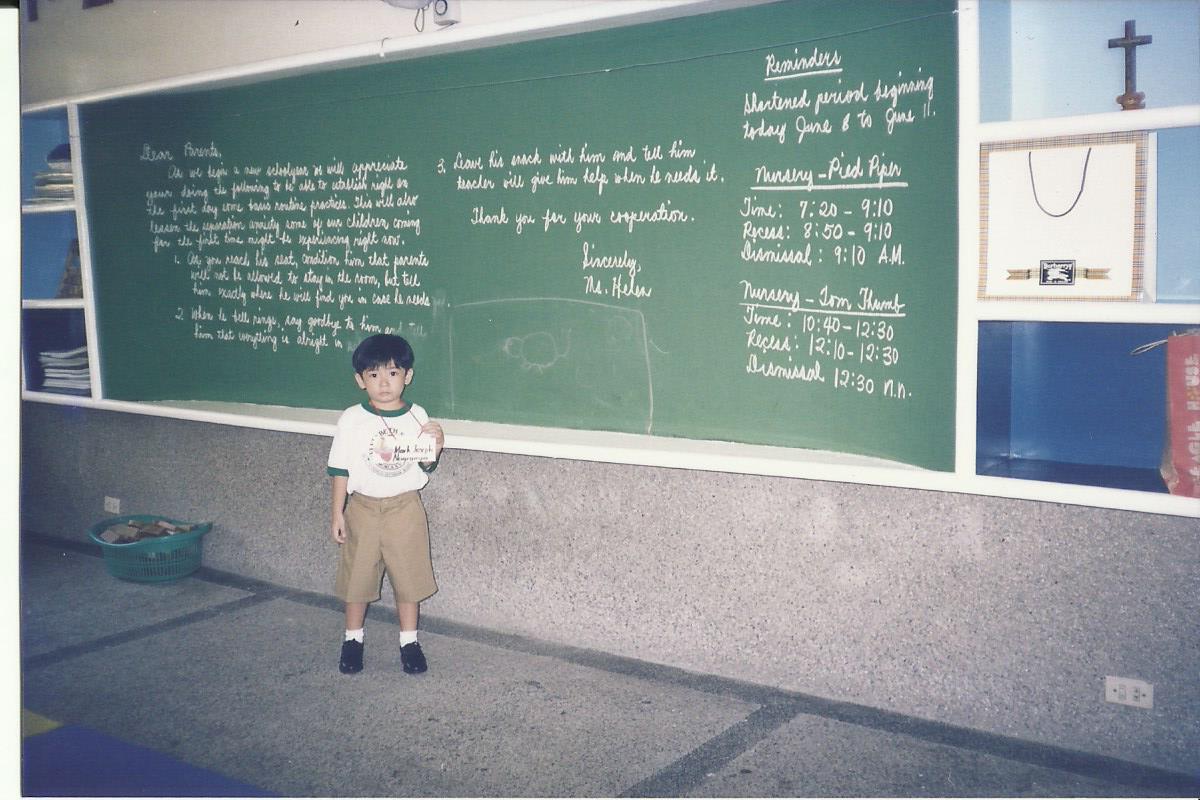 Dear Parents,
As we begin a new schoolyear we will appreciate
your doing the following to be able to establish right on
the first day some basis routine practices. This will also
lessen the separation anxiety some of our children coming
for the first time might be experiencing right now.
1. As you reach his seat, condition him that parents
will not be allowed to stay in the room, but tell
him exactly where he will find you in case he needs
2. When he bell rings, say goodbye to him and tell
him that everything is alright in
3. Leave his snack with him and tell him
teacher will give him help when he needs it.
Thank you for your cooperation.
Sincerely,
Ms. Helen
Reminders
Shortened period beginning
today June 8 to June 11.
Nursery - Pied Piper
Time: 7:20 - 9:10
Recess: 8:50 - 9:10
Dismissal: 9:10 A.M.
Nursery - Tom Thumb
Time: 10:40 - 12:30
Recess: 12:10 - 12:30
Dismissal 12:30 n.n.
Mark Joseph